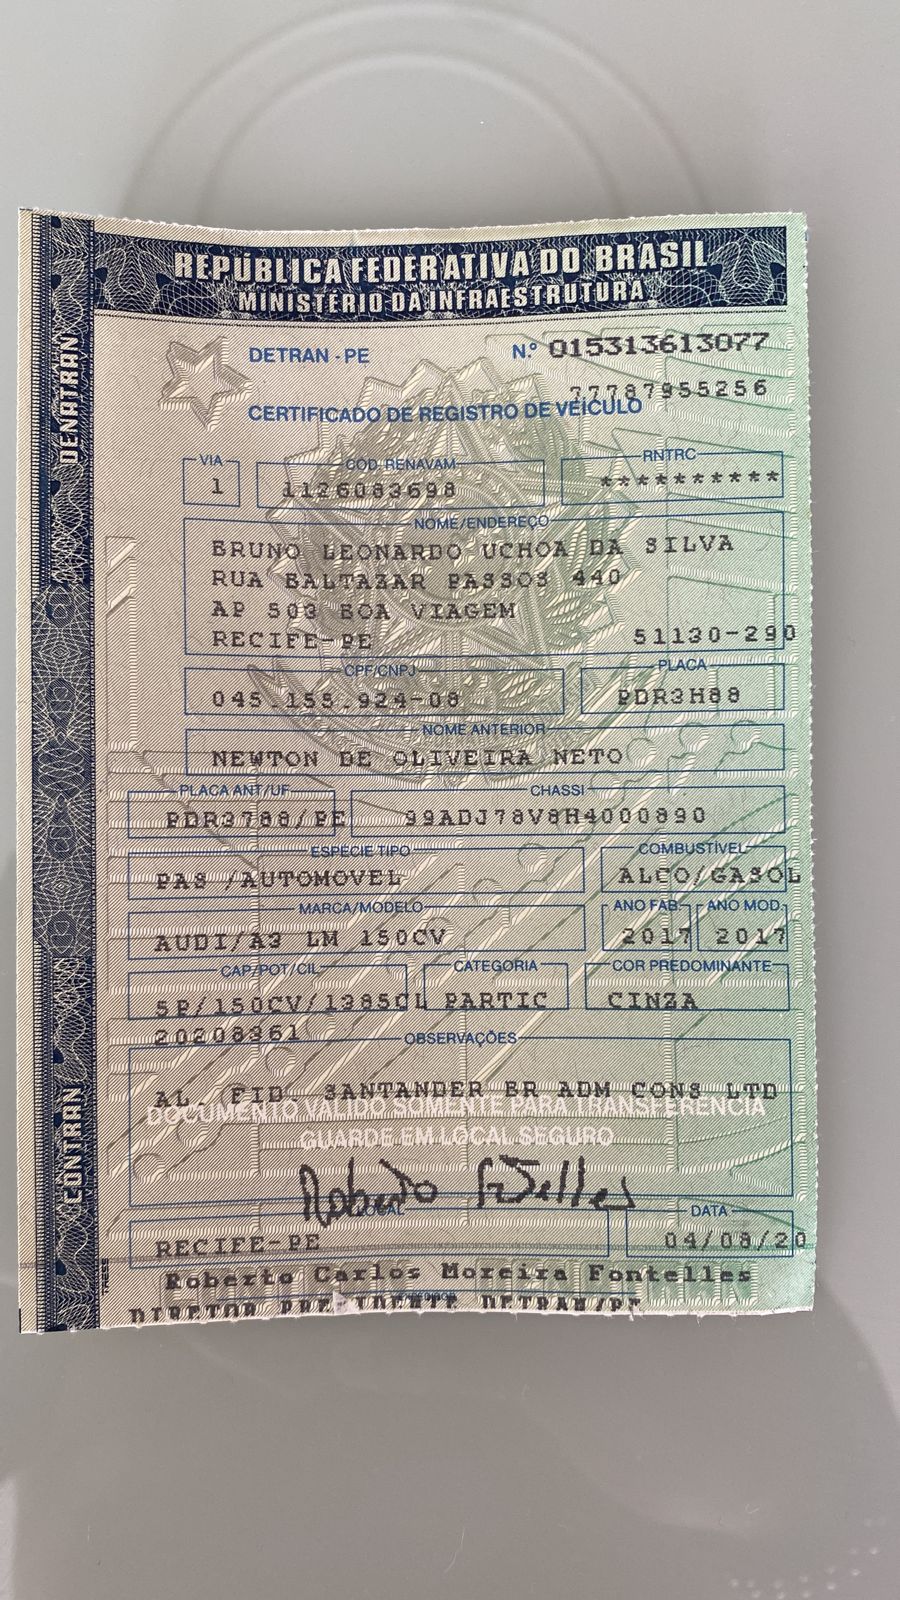 REPÚBLICA FEDERATIVA DO BRASIL
MINISTÉRIO DA INFRAESTRUTURA
DENATRAN
CONTRAN
DETRAN - PE N.º 015313613077
77787955256
CERTIFICADO DE REGISTRO DE VEÍCULO
VIA CÓD. RENAVAM RNTRC
1 1126083698 **********
NOME/ENDEREÇO
BRUNO LEONARDO UCHOA DA SILVA
RUA BALTAZAR PASSOS 440
AP 503 BOA VIAGEM
RECIFE-PE 51130-290
CPF/CNPJ PLACA
045.155.924-08 PDR3H88
NOME ANTERIOR
NEWTON DE OLIVEIRA NETO
PLACA ANT/UF CHASSI
PDR3788/PE 99ADJ78V8H4000890
ESPÉCIE TIPO COMBUSTÍVEL
PAS /AUTOMOVEL ALCO/GASOL
MARCA/MODELO ANO FAB. ANO MOD.
AUDI/A3 LM 150CV 2017 2017
CAP/POT/CIL CATEGORIA COR PREDOMINANTE
5P/150CV/1385CL PARTIC CINZA
20208361
OBSERVAÇÕES
AL. FID. SANTANDER BR ADM CONS LTD
DOCUMENTO VÁLIDO SOMENTE PARA TRANSFERÊNCIA
GUARDE EM LOCAL SEGURO
Roberto Fontelles
LOCAL DATA
RECIFE-PE 04/08/20
Roberto Carlos Moreira Fontelles
DIRETOR PRESIDENTE DETRAN/PE